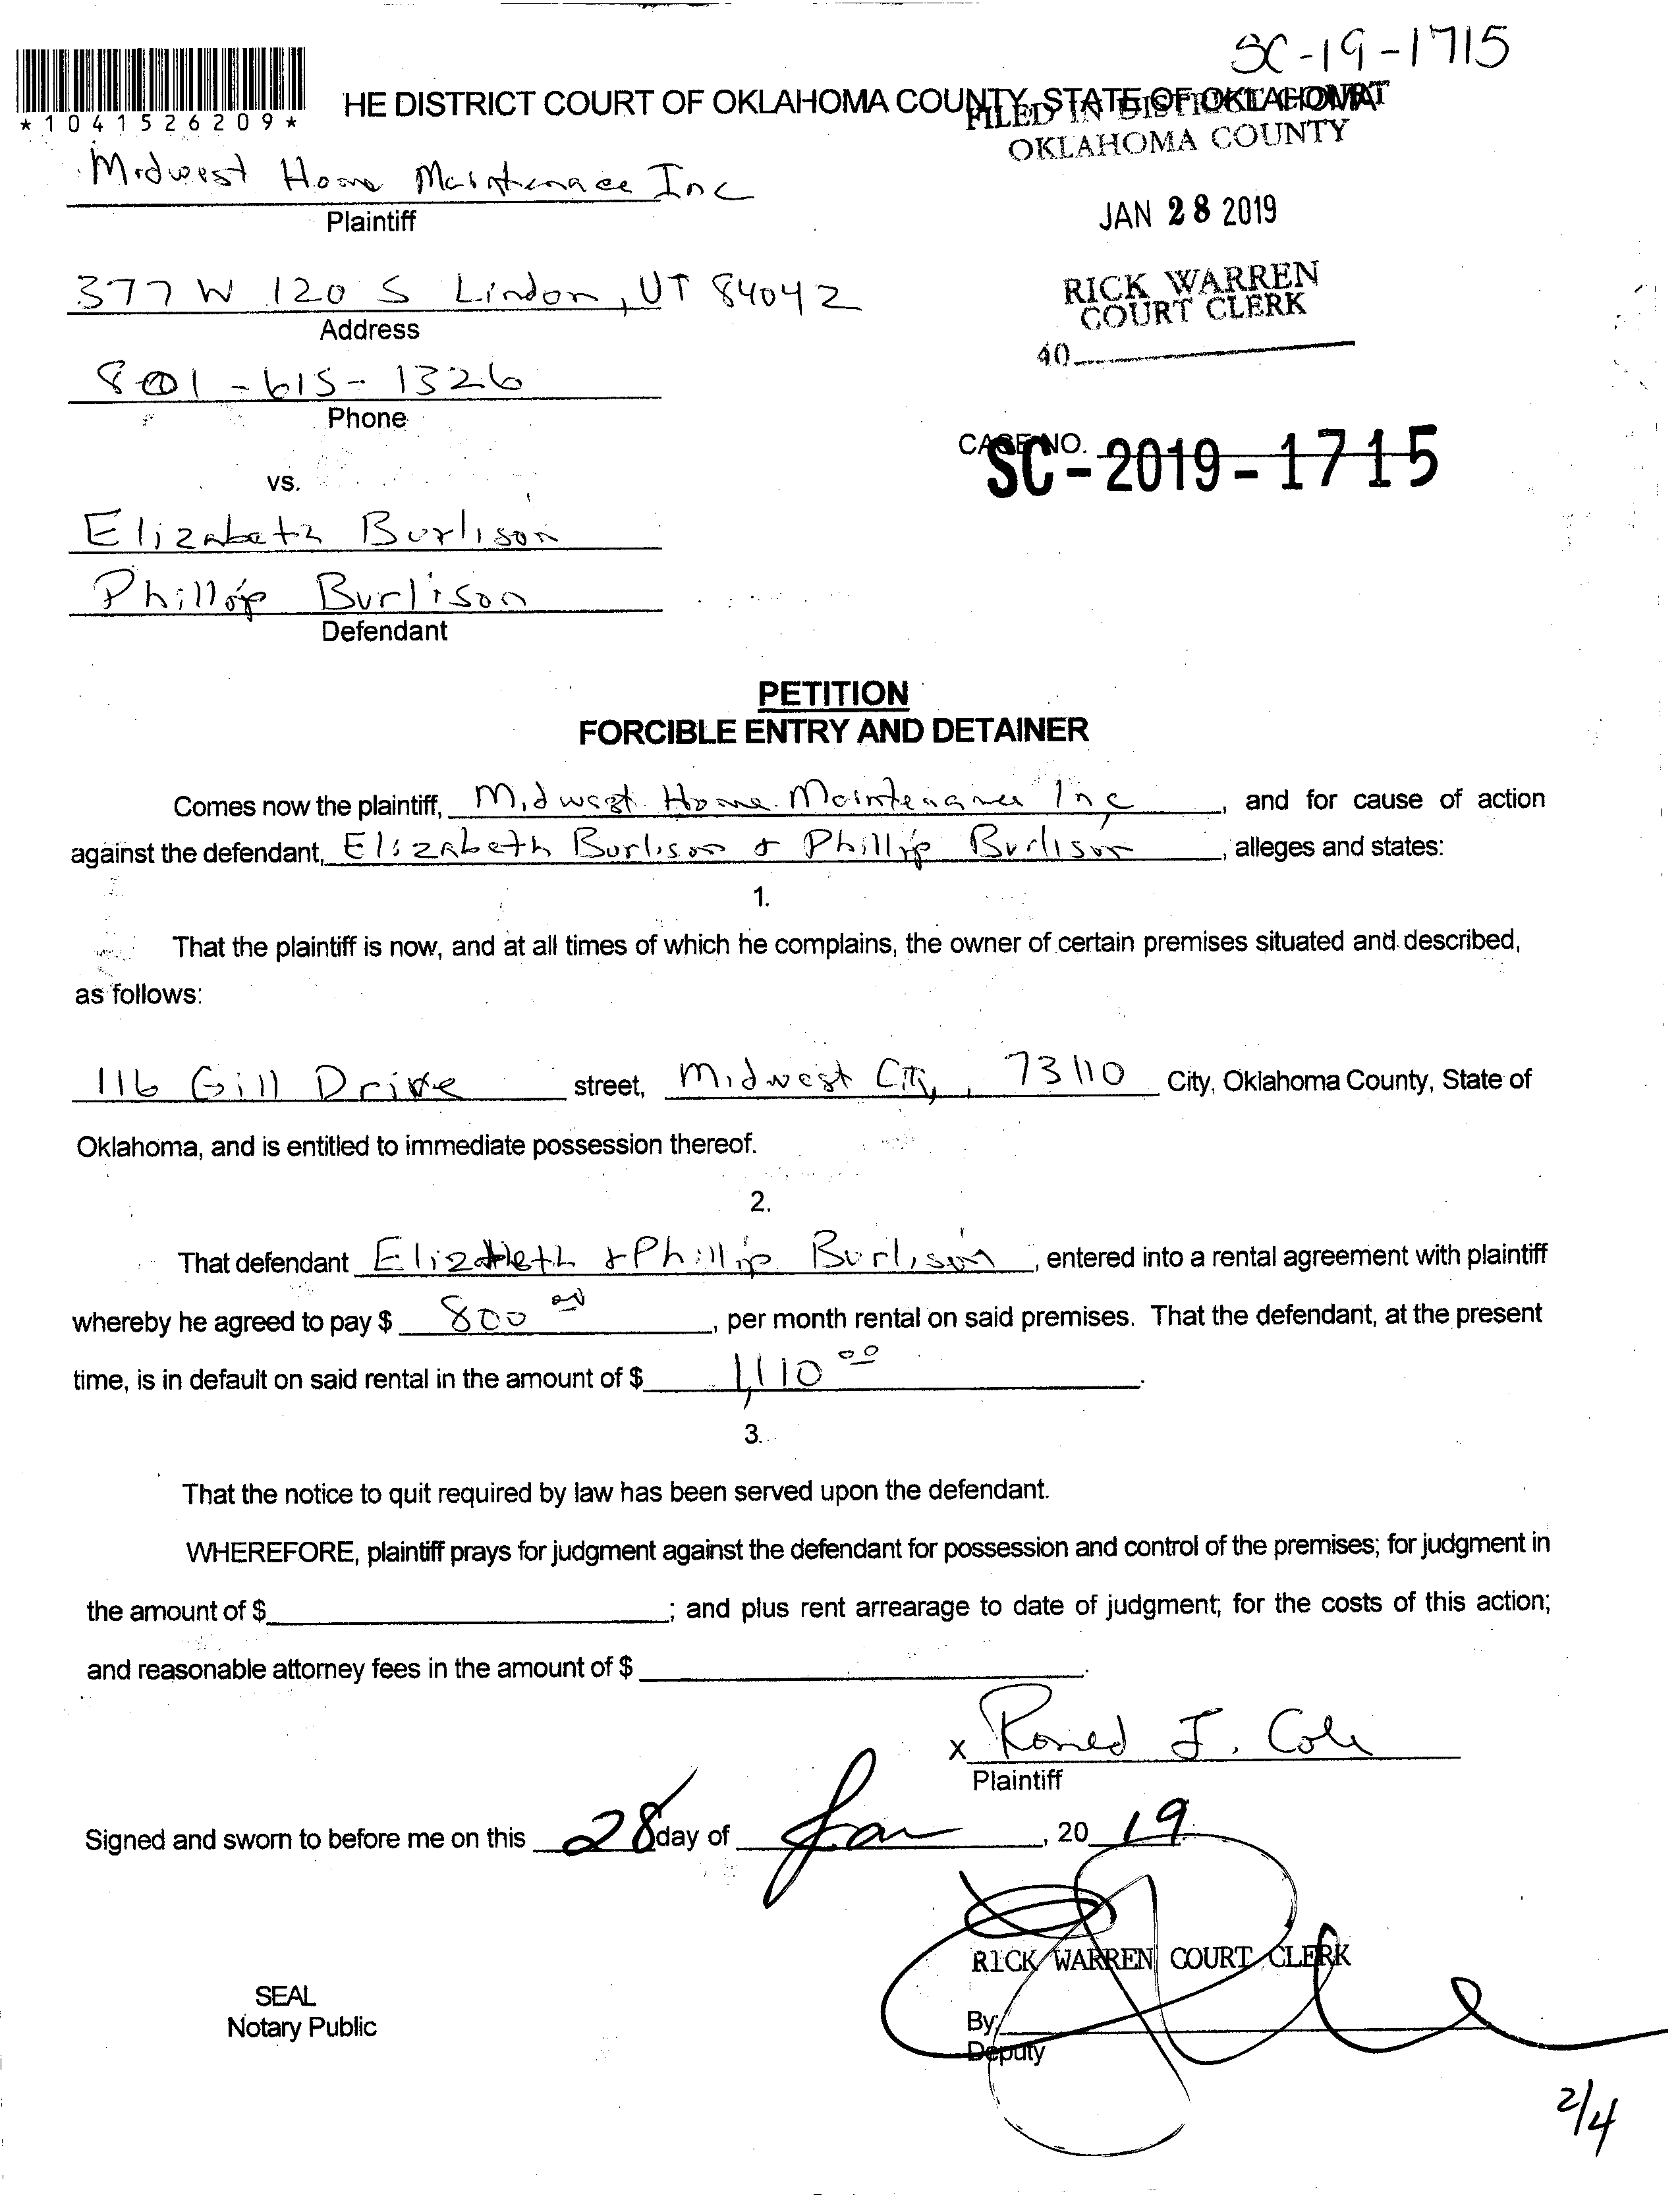 SC-19-1715
*1041526209*
HE DISTRICT COURT OF OKLAHOMA COUNTY, STATE OF OKLAHOMA
FILED IN DISTRICT COURT
OKLAHOMA COUNTY
Midwest Home Maintenace Inc
Plaintiff
JAN 28 2019
377 W 120 S Lindon, UT 84042
Address
RICK WARREN
COURT CLERK
40
801-615-1326
Phone
CASE NO.
SC-2019-1715
vs.
Elizabeth Burlison
Phillip Burlison
Defendant
PETITION
FORCIBLE ENTRY AND DETAINER
Comes now the plaintiff, Midwest Home Maintenance Inc, and for cause of action
against the defendant, Elizabeth Burlison & Phillip Burlison, alleges and states:
1.
That the plaintiff is now, and at all times of which he complains, the owner of certain premises situated and described,
as follows:
116 Gill Drive street, Midwest City, 73110 City, Oklahoma County, State of
Oklahoma, and is entitled to immediate possession thereof.
2.
That defendant Elizabeth & Phillip Burlison, entered into a rental agreement with plaintiff
whereby he agreed to pay $ 800 00, per month rental on said premises. That the defendant, at the present
time, is in default on said rental in the amount of $ 1,110 00.
3.
That the notice to quit required by law has been served upon the defendant.
WHEREFORE, plaintiff prays for judgment against the defendant for possession and control of the premises; for judgment in
the amount of $ ; and plus rent arrearage to date of judgment; for the costs of this action;
and reasonable attorney fees in the amount of $ .
X Roned J. Cole
Plaintiff
Signed and sworn to before me on this 28 day of Jan, 20 19.
RICK WARREN COURT CLERK
SEAL
Notary Public
By:
Deputy
2/4